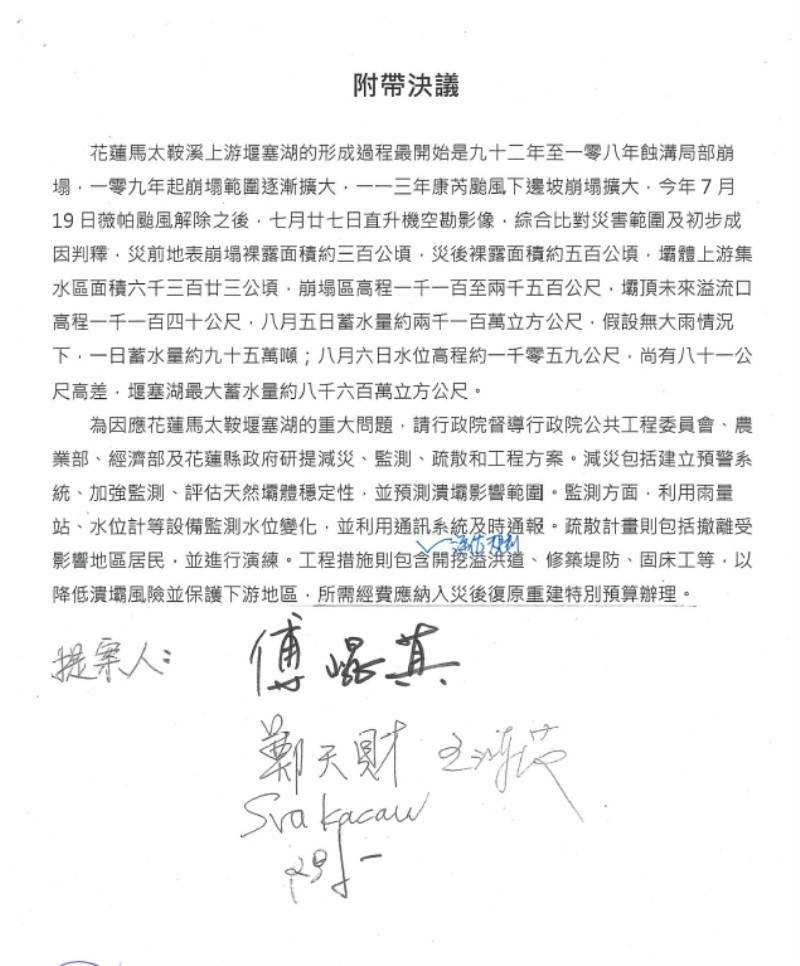 附帶決議
花蓮馬太鞍溪上游堰塞湖的形成過程最開始是九十二年至一零八年蝕溝局部崩
塌，一零九年起崩塌範圍逐漸擴大，一一三年康芮颱風下邊坡崩塌擴大，今年7月
19日薇帕颱風解除之後，七月廿七日直升機空勘影像，綜合比對災害範圍及初步成
因判釋，災前地表崩塌裸露面積約三百公頃，災後裸露面積約五百公頃，壩體上游集
水區面積六千三百廿三公頃，崩塌區高程一千一百至兩千五百公尺，壩頂未來溢流口
高程一千一百四十公尺，八月五日蓄水量約兩千一百萬立方公尺，假設無大雨情況
下，一日蓄水量約九十五萬噸；八月六日水位高程約一千零五九公尺，尚有八十一公
尺高差，堰塞湖最大蓄水量約八千六百萬立方公尺。
為因應花蓮馬太鞍堰塞湖的重大問題，請行政院督導行政院公共工程委員會、農
業部、經濟部及花蓮縣政府研提減災、監測、疏散和工程方案。減災包括建立預警系
統、加強監測、評估天然壩體穩定性，並預測潰壩影響範圍。監測方面，利用雨量
站、水位計等設備監測水位變化，並利用通訊系統及時通報。疏散計畫則包括撤離受
影響地區居民，並進行演練。工程措施則包含開挖溢洪道、修築堤防、固床工等，以
降低潰壩風險並保護下游地區，所需經費應納入災後復原重建特別預算辦理。
提案人：傅崐萁
鄭天財
Sra Kacaw